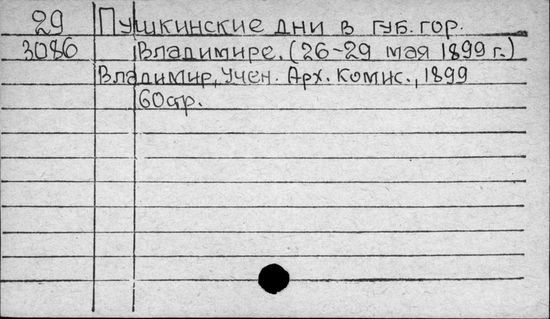 29 Пушкинские дни в губ. гор.
3086 Владимире. (26-29 мая 1899 г.)
Владимир, Учен. Арх. Комис., 1899
60 стр.